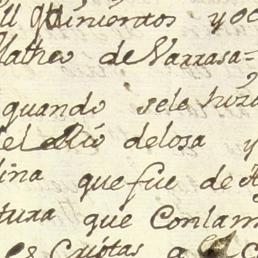 quinientos yoc
Matheo de Varrasa=
quando sele hizo
el Rio delosa y
ina que fue de A
tura que Conlam
Criotas a